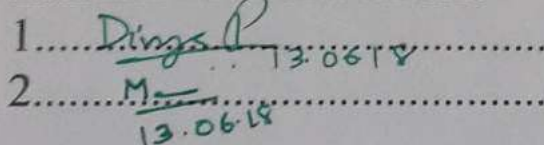 1.....Dings P
13.06.18
2.....M
13.06.18